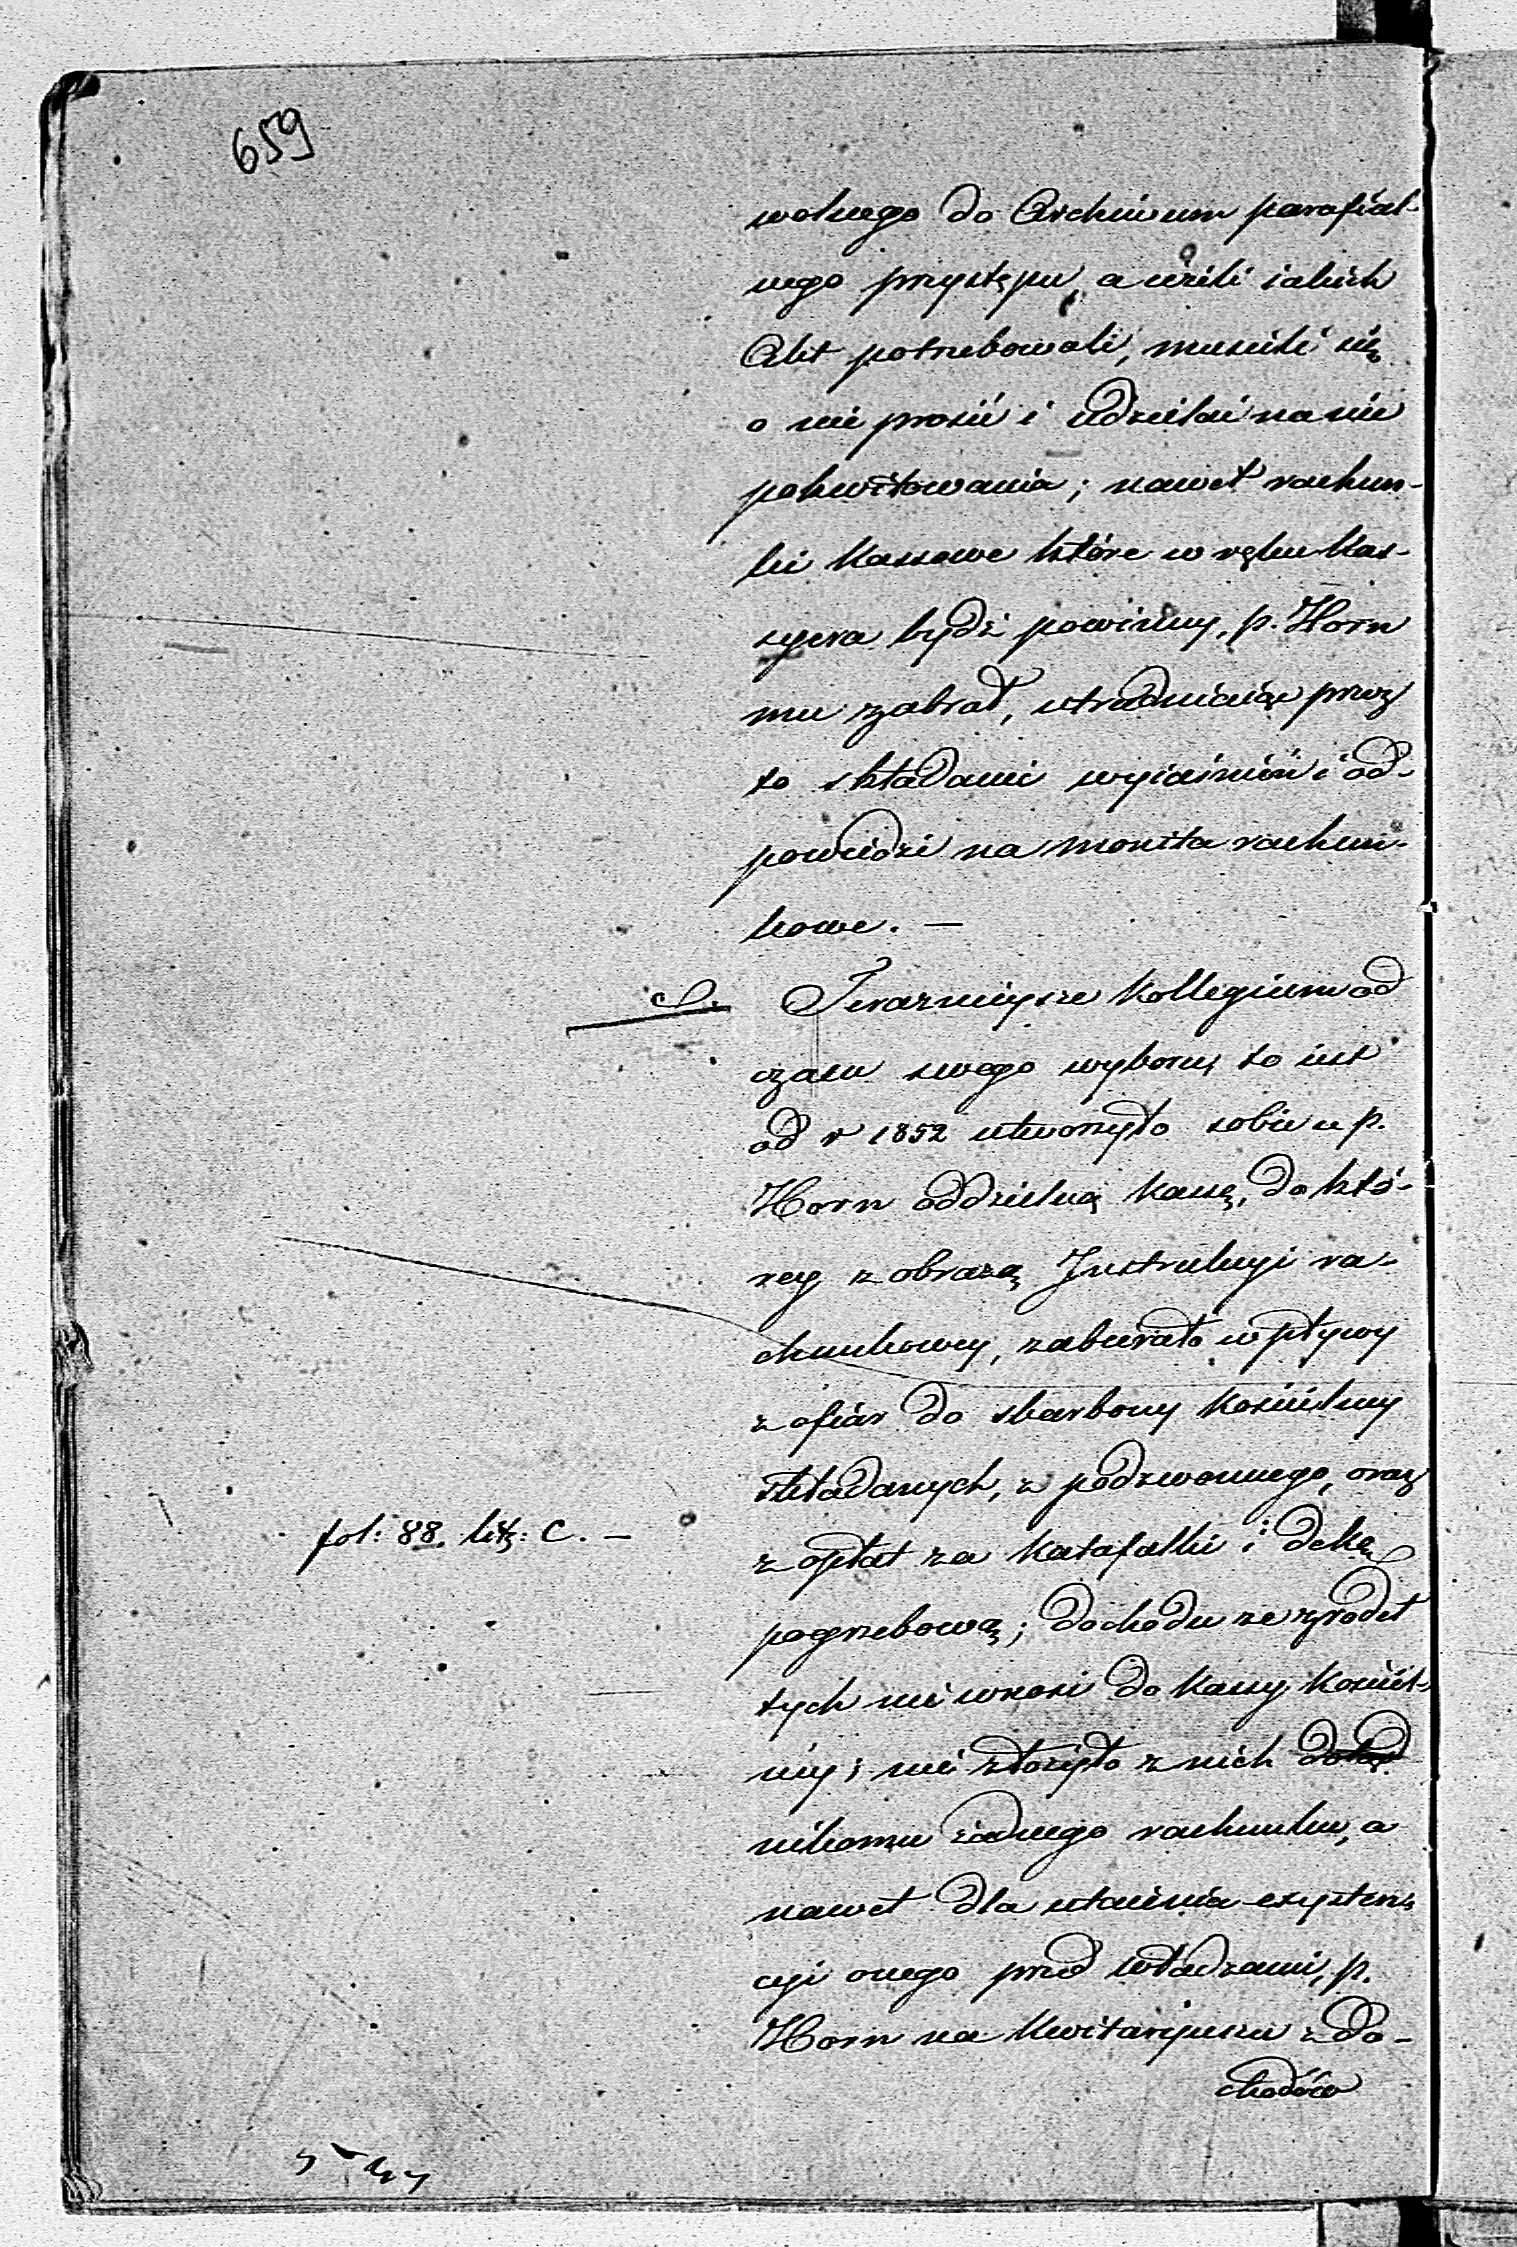 659
wolnego do Archiwum parafial-
nego przystępu, a ieżeli iakich
Akt potrzebowali, musieli się
o nie prosić i udzielać na nie
pokwitowania; nawet rachun-
ki Kassowe które w ręku Kas-
syera bydź powinny, p. Horn
mu zabrał, utrudniaiąc przez
to składanie wyiaśnień i od-
powiedzi na monita rachun-
kowe. —
Teraznieysze Kollegium od
czasu swego wyboru, to iest
od r 1852 utworzyło sobie u p.
Horn oddzielną kassę, do któ-
rey z obrazą Instrukcyi ra-
chunkowey, zabierało wpływy
z ofiar do skarbony Kościelney
składanych, z podzwonnego, oraz
fol: 88. litt: C. —
z opłat za Katafalki i dekę
pogrzebową; dochodu ze zrodeł
tych nie wnosi do Kassy Kościel-
ney; nie złożyło z nich dotąd
nikomu żadnego rachunku, a
nawet dla utaienia exysten-
cyi onego przed władzami, p.
Horn na Kwitaryuszu z do-
chodów